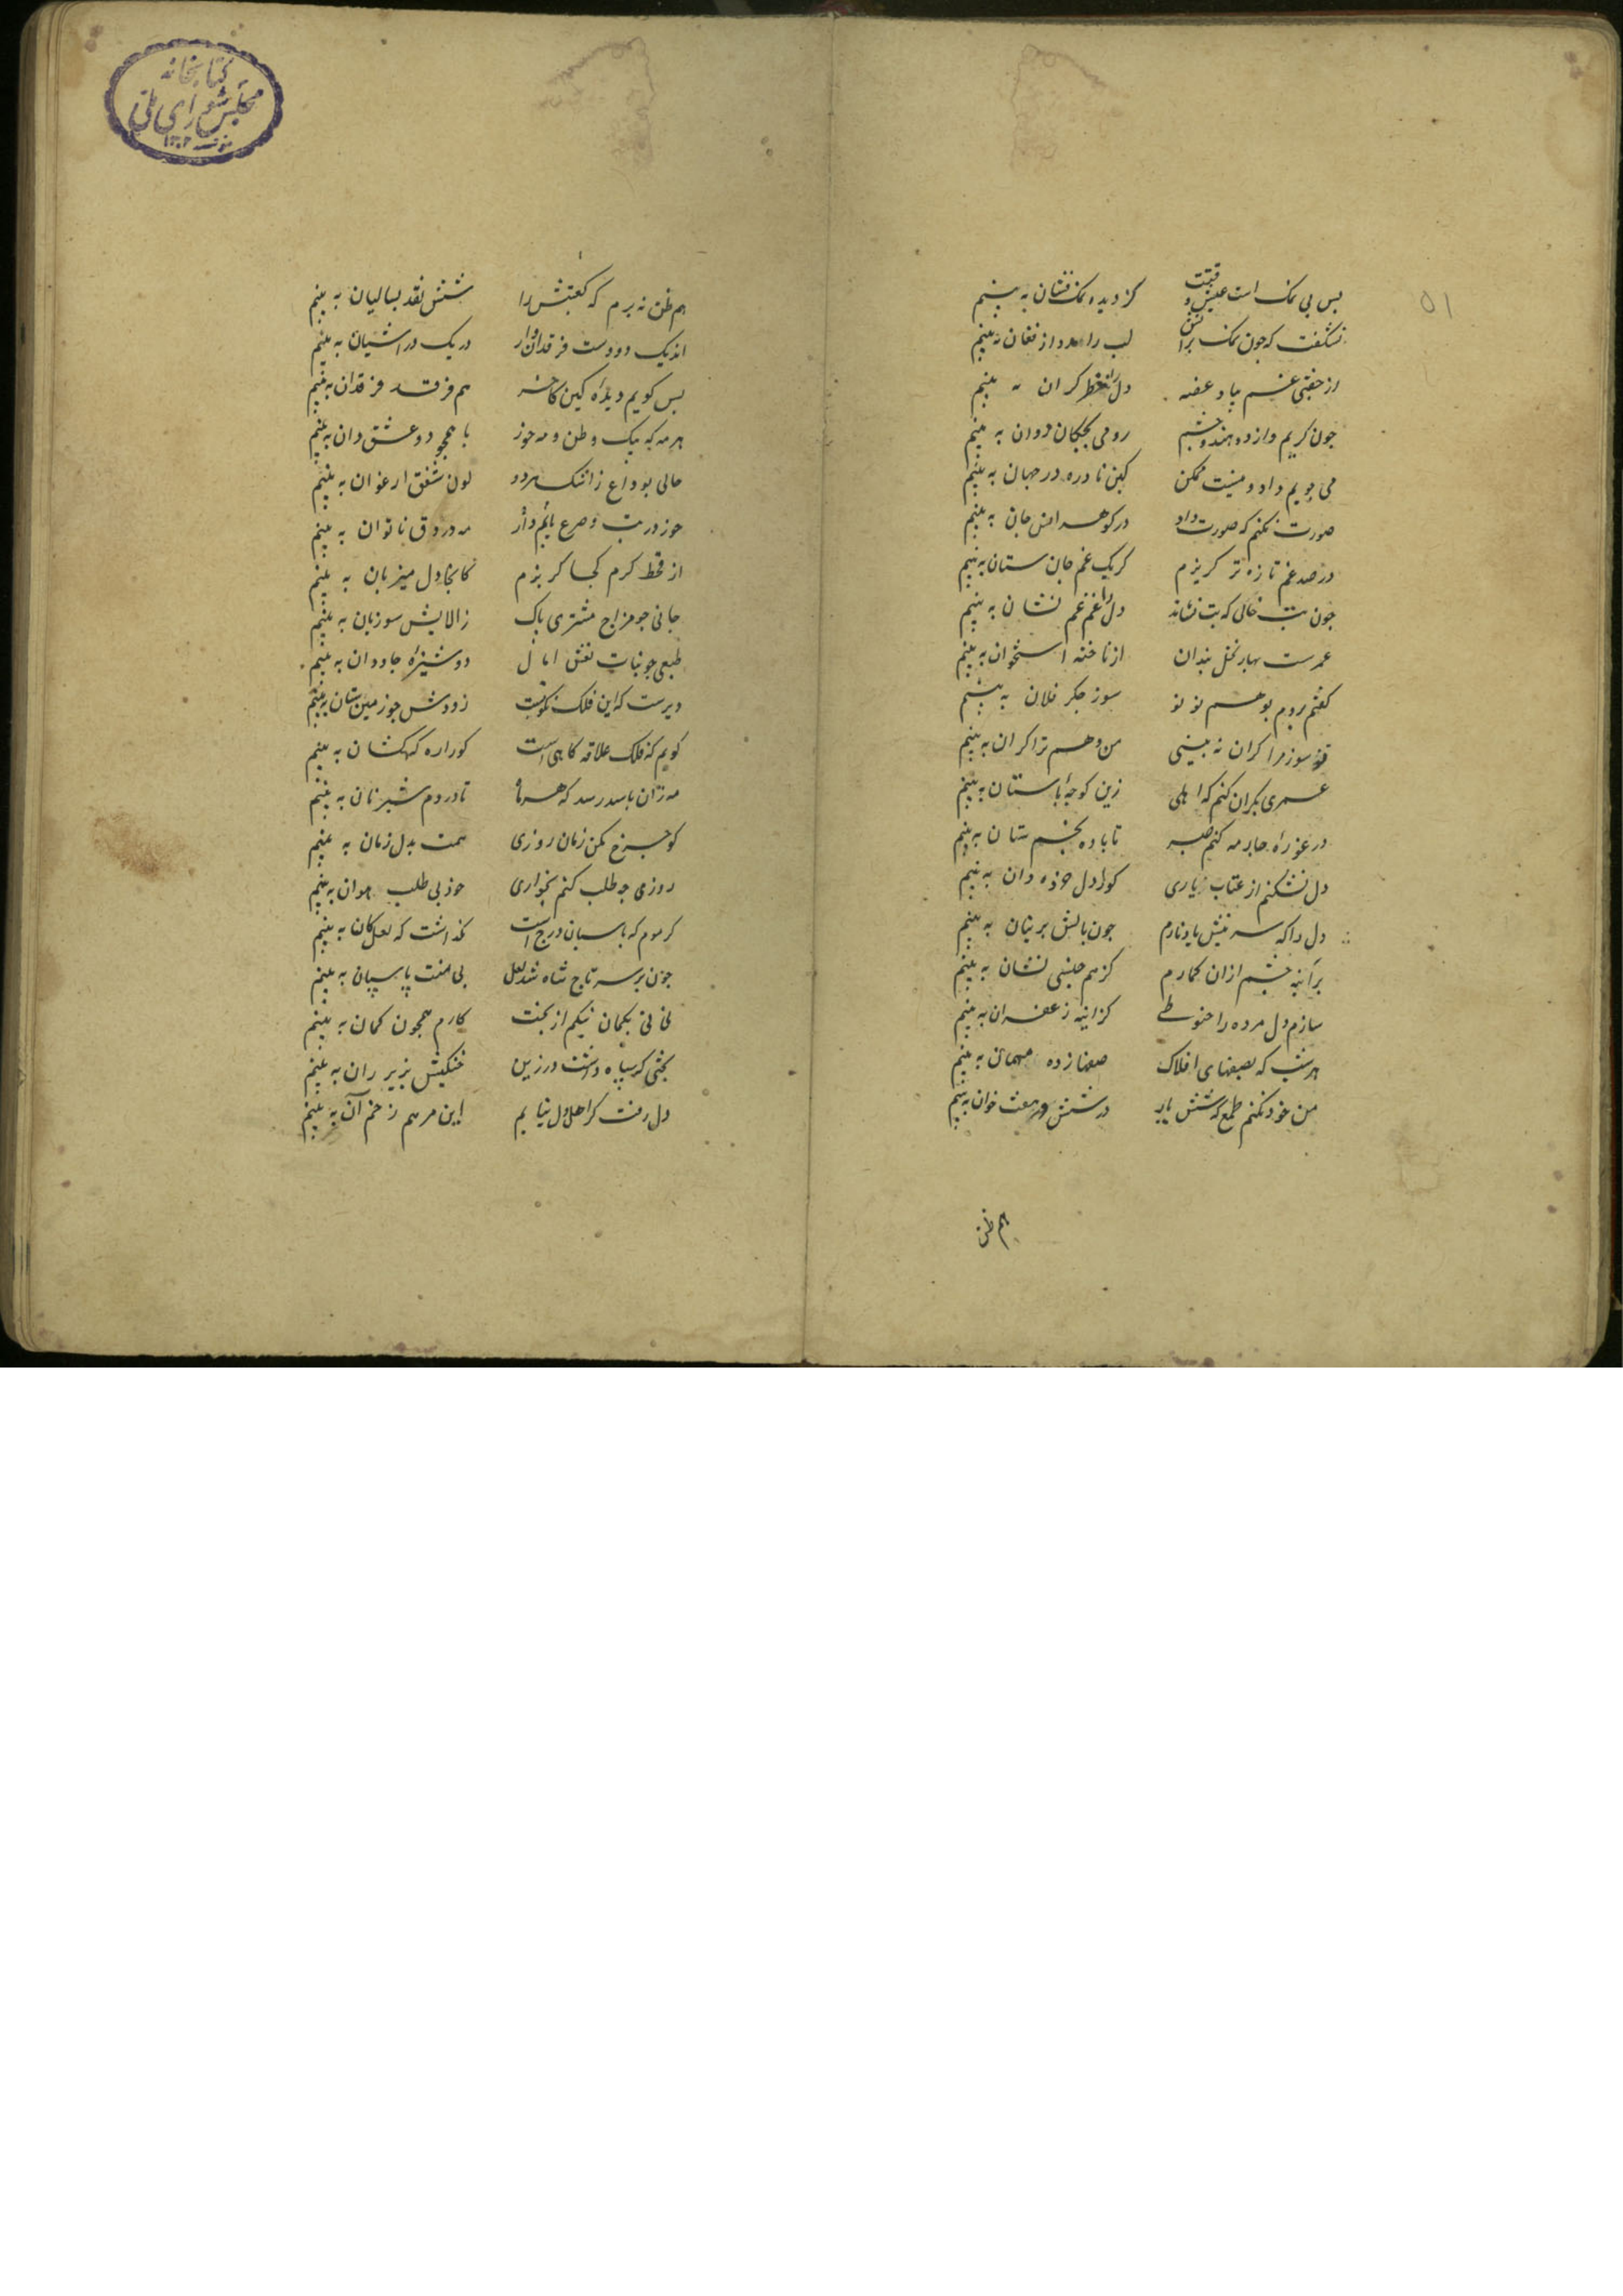 ۵۱
بس بی نمک است عیش وقتت کز دیده نمک فشان به بینم
نشکفت که جون نمک بر آتش لب را از فغان به بینم
از جفتی غم بباد غصه دل را خطر کران به بینم
جون کریم وازده هندو جشم رومی بجکان دوان به بینم
می جویم داد و نیست ممکن کین نادره در جهان به بینم
صورت نکنم که صورت داد در کوهر انس جان به بینم
در صد غم تازه تر کریزم کر یک غم جان ستان به بینم
جون تب خالی که تب نشاند دل را غم غم نشان به بینم
عمرست بهار نخل بندان از ناخنه استخوان به بینم
کفتم بروم بوهم نو نو سوز جکر فلان به بینم
تو سوز مرا کران نه بینی من وهم ترا کران به بینم
عمری بکران کنم که اهلی زین کوجهٔ باستان به بینم
دل نشکنم از عتاب یاری کورا دل خرده دان به بینم
دل را که سر نیش یاد نارم جون بالش پرنیان به بینم
بر آینه جشم از ان کمارم کز هم جنسی نشان به بینم
سازم دل مرده را حنوطی کز آینه زعفران به بینم
هر شب که بصفهای افلاک صفها زده میهمان به بینم
من خود نکنم طمع که شش بار در شش و هفت خوان به بینم
هم ظن
کتابخانه
مجلس شورای ملی
هم ظن نه برم که کعبتش را شش نقد بسالیان به بینم
از یک دو دوست فرقدان وار در یک در آشیان به بینم
بس کویم دیده کین هم فرقد فرقدان به بینم
هر مه که بیک وطن مه و خور با هم جو دو عشق دان به بینم
حالی بوداع از اشک هر دو لون شفق ارغوان به بینم
خور در تب و صرع یابم و آر مه در دق ناتوان به بینم
از قحط کرم کجا کریزم کانجا دل میزبان به بینم
جانی جو مزاج مشتری پاک ز الایش سوزیان به بینم
طبعی جو بنات نعش دوشیزه جاودان به بینم
دیرست که این فلک نکونست زودش جو زمین ستان به بینم
کویم که فلک علاقه کاهی است کو راره کهکشان به بینم
کو جرخ مکن زمان روزی همت بدل زمان به بینم
روزی چه طلب کنم بخواری خود بی طلب و هوان به بینم
کر موم که پاسبان درج است نکذاشت که لعل کان به بینم
جون بر سر تاج شاه شد لعل بی منت پاسبان به بینم
نی نی بکمان نیکم از بخت کارم همجون کمان به بینم
بختی که سیاه داشت در زین خنکیش بزیر ران به بینم
دل رفت کر اهل دل نیابم این مرهم زخم آن به بینم